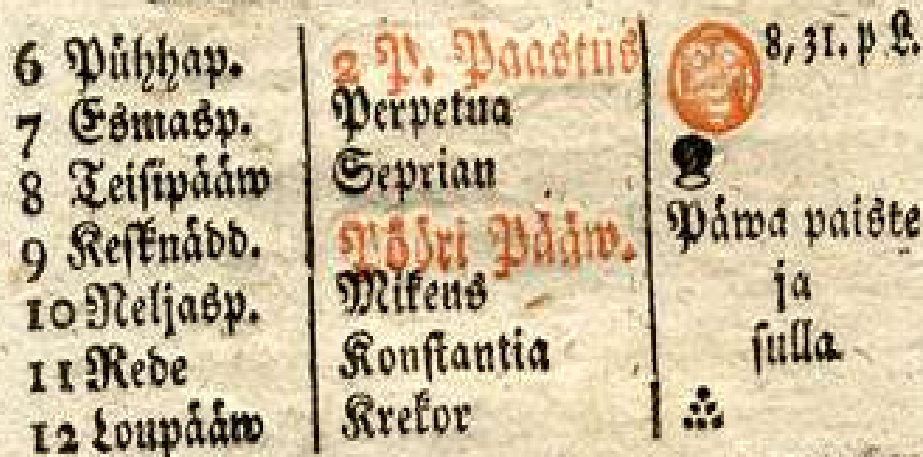 6 Pühhap. 2 P. Paastus 8, 31. p L.
7 Esmasp. Perpetua
8 Teisipääw Seprian
9 Kesknädd. Pööri Pääw. Päwa paiste
10 Neljasp. Mikens ja
11 Rede Konstantia sulla
12 Loupääw Krekor